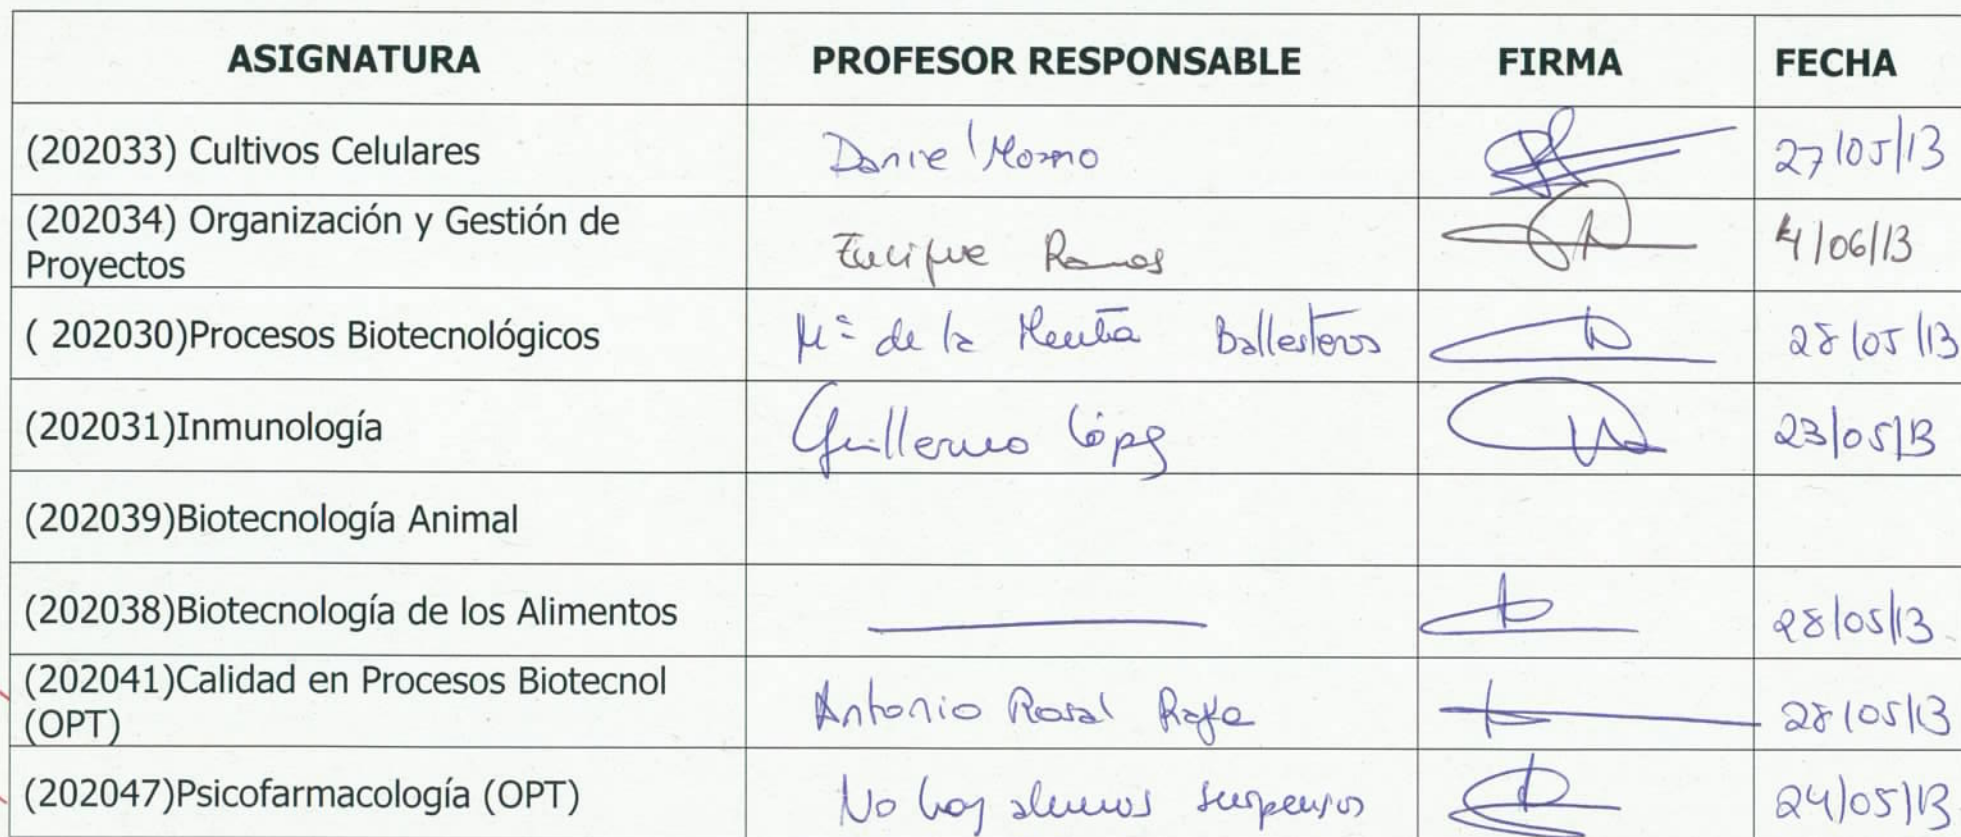 ASIGNATURA PROFESOR RESPONSABLE FIRMA FECHA
(202033) Cultivos Celulares Daniel Moreno 27/05/13
(202034) Organización y Gestión de
Proyectos Enrique Ramos 4/06/13
( 202030)Procesos Biotecnológicos Mª de la Menta Ballesteros 28/05/13
(202031)Inmunología Guillermo López 23/05/13
(202039)Biotecnología Animal
(202038)Biotecnología de los Alimentos 28/05/13
(202041)Calidad en Procesos Biotecnol
(OPT) Antonio Rosal 28/05/13
(202047)Psicofarmacología (OPT) No hay alumnos suspensos 24/05/13